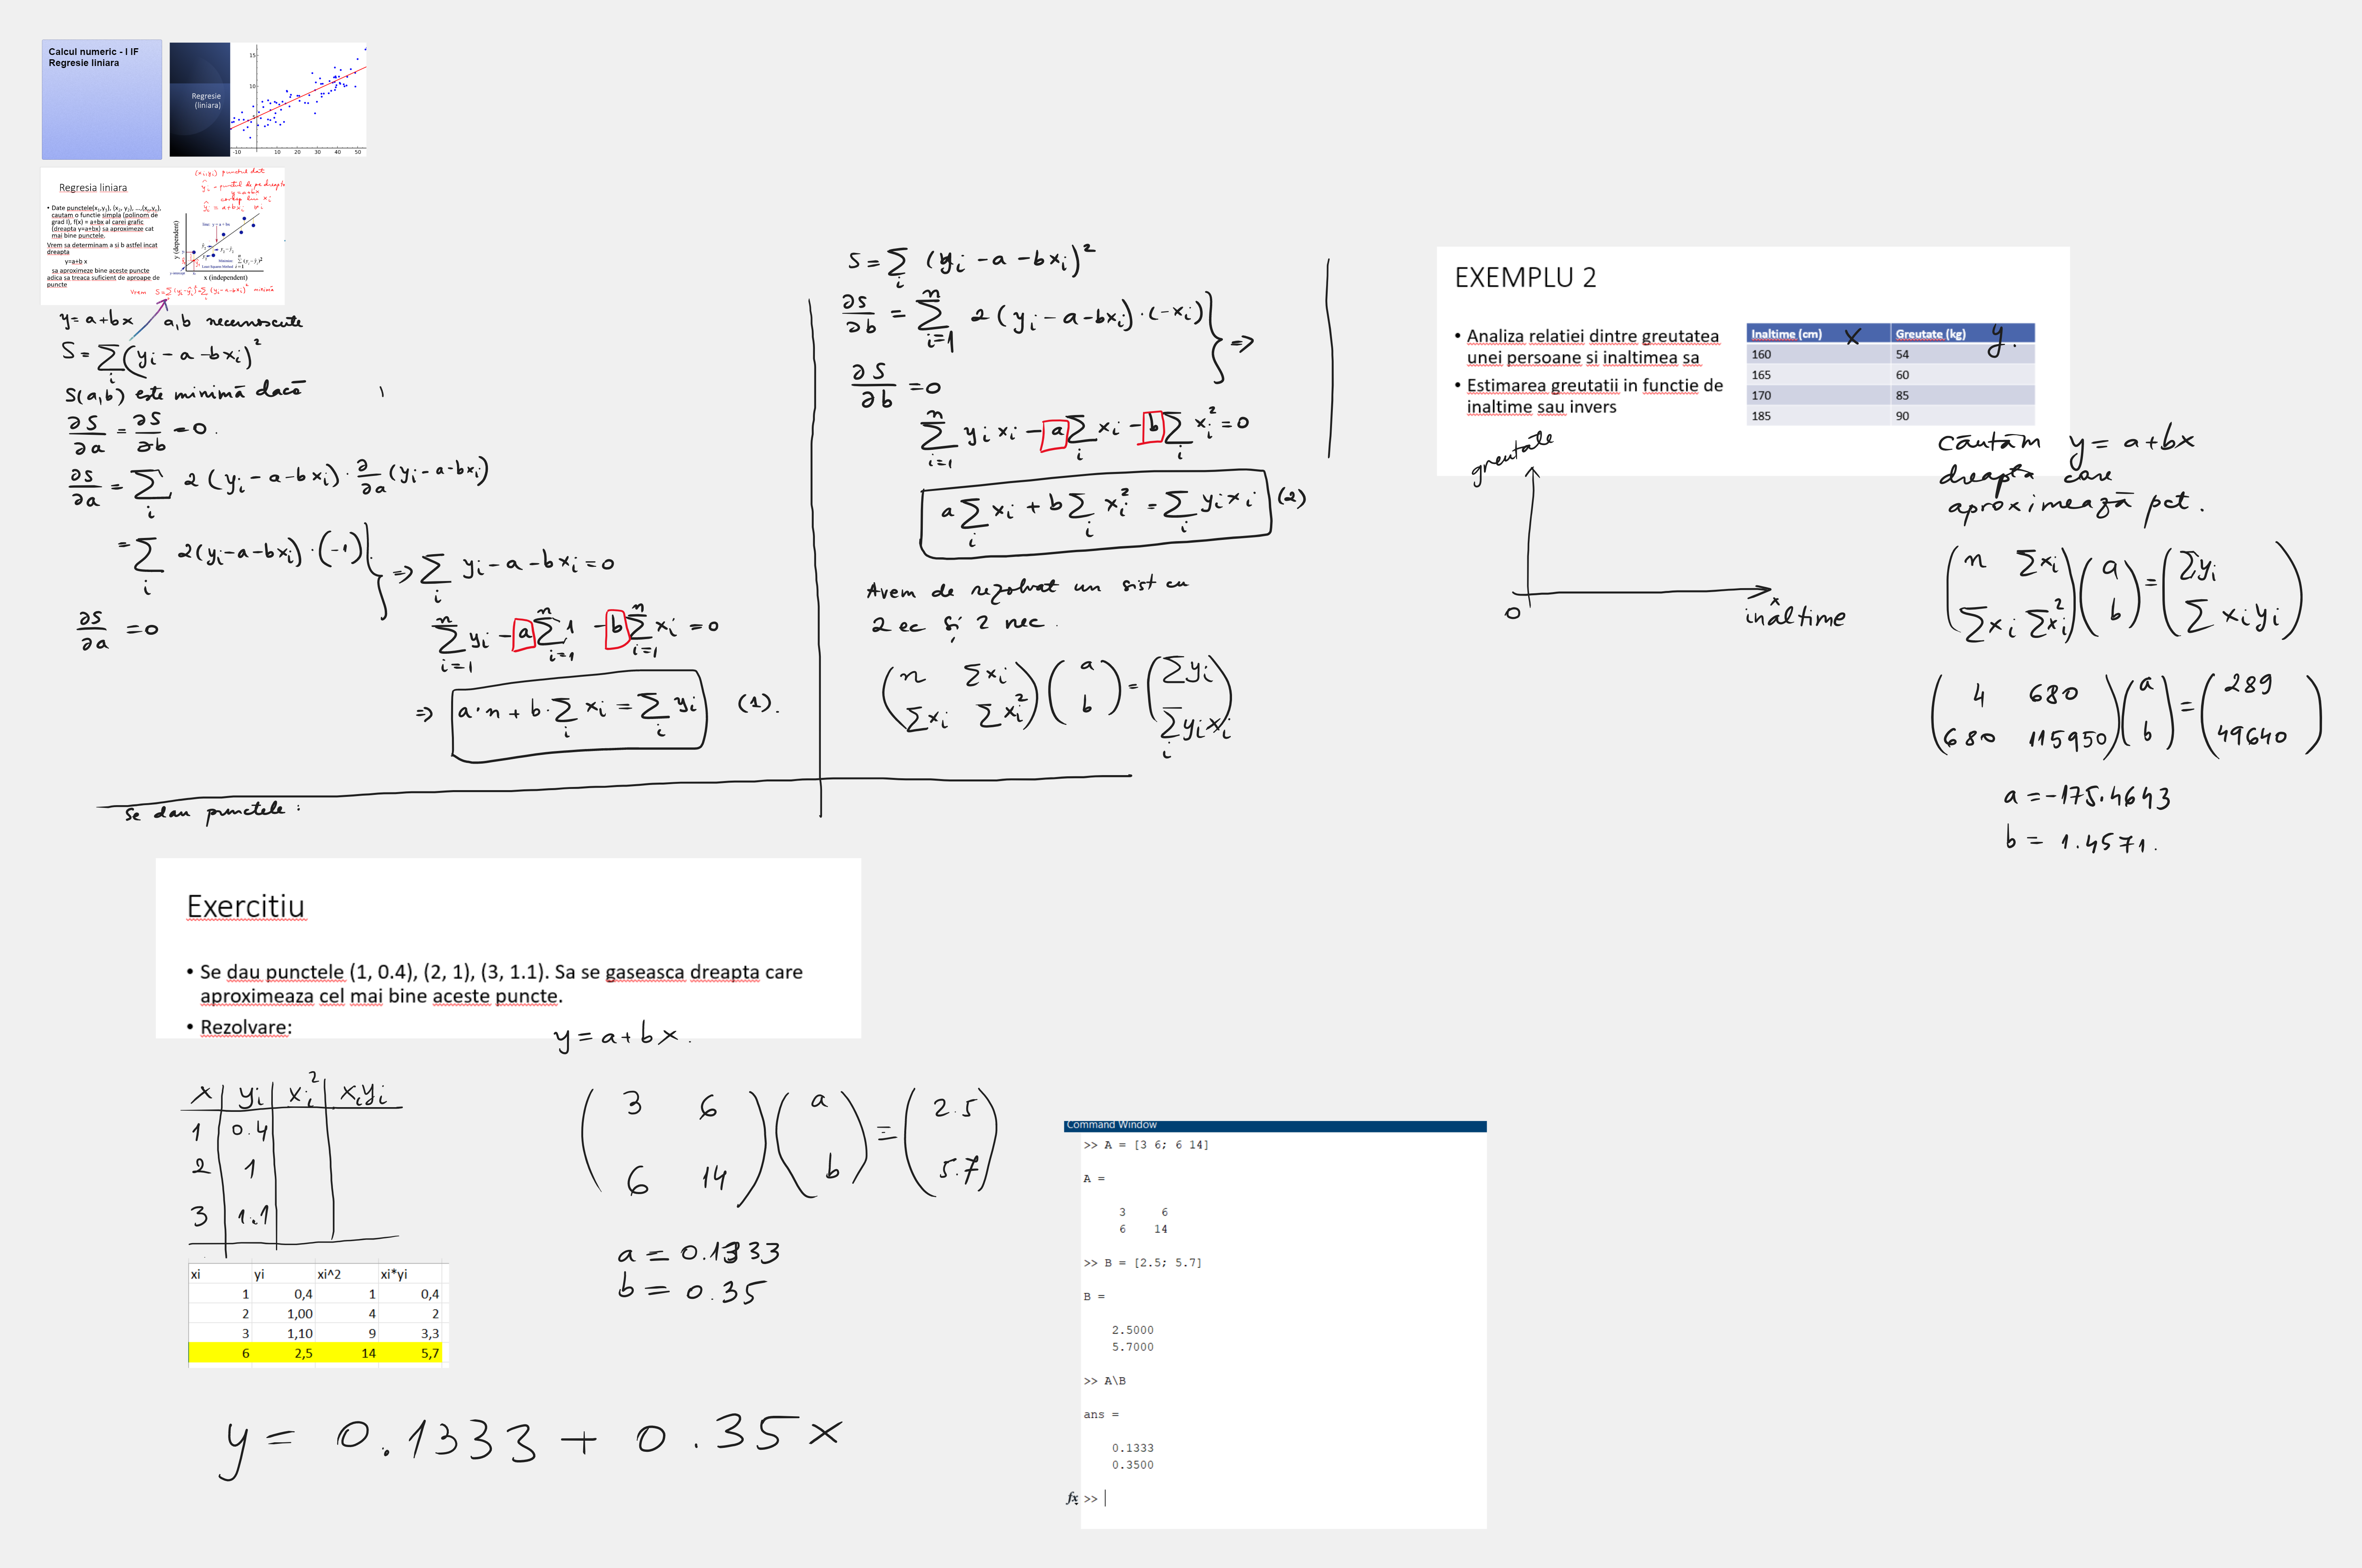 Calcul numeric - I IF
Regresie liniara
Regresie
(liniara)
15
10
-10 10 20 30 40 50
(xi, yi) punctul dat
ŷi - punctul de pe dreapta
y=a+bx
coresp lui xi
ŷi = a+bxi ∀i
Regresia liniara
• Date punctele(x1,y1), (x2, y2), ...,(xn,yn),
cautam o functie simpla (polinom de
grad I), f(x) = a+bx al carei grafic
(dreapta y=a+bx) sa aproximeze cat
mai bine punctele.
Vrem sa determinam a si b astfel incat
dreapta
y=a+b x
sa aproximeze bine aceste puncte
adica sa treaca suficient de aproape de
puncte
y (dependent)
x (independent)
Vrem S=∑i (yi-ŷi)²=∑i (yi-a-bxi)² minimă
y= a+bx a,b necunoscute
S= ∑i (yi - a - bxi)²
S(a,b) este minimă dacă
∂S/∂a = ∂S/∂b = 0.
∂S/∂a = ∑i 2(yi - a - bxi) · ∂/∂a (yi - a - bxi)
= ∑i 2(yi-a-bxi) · (-1)
=> ∑i yi - a - bxi = 0
∂S/∂a = 0
∑i=1^n yi - a ∑i=1^n 1 - b ∑i=1^n xi = 0
=> a·n + b·∑i xi = ∑i yi (1).
S = ∑i (yi - a - bxi)²
∂S/∂b = ∑i=1^n 2(yi - a - bxi) · (-xi)
=>
∂S/∂b = 0
∑i=1^n yi xi - a ∑i xi - b ∑i xi² = 0
a ∑i xi + b ∑i xi² = ∑i yi xi (2)
Avem de rezolvat un sist cu
2 ec și 2 nec.
(n ∑xi; ∑xi ∑xi²) (a; b) = (∑yi; ∑i yi xi)
EXEMPLU 2
• Analiza relatiei dintre greutatea
unei persoane si inaltimea sa
• Estimarea greutatii in functie de
inaltime sau invers
Inaltime (cm) x Greutate (kg) y.
160 54
165 60
170 85
185 90
greutate
0
x
inaltime
Căutăm y = a+bx
dreapta care
aproximează pct.
(n ∑xi; ∑xi ∑xi²) (a; b) = (∑yi; ∑ xi yi)
(4 680; 680 115950) (a; b) = (289; 49640)
a = -175.4643
b = 1.4571.
Se dau punctele :
Exercitiu
• Se dau punctele (1, 0.4), (2, 1), (3, 1.1). Sa se gaseasca dreapta care
aproximeaza cel mai bine aceste puncte.
• Rezolvare:
y = a + b x.
x yi xi² xiyi
1 0.4
2 1
3 1.1
(3 6; 6 14) (a; b) = (2.5; 5.7)
a = 0.1333
b = 0.35
xi yi xi^2 xi*yi
1 0,4 1 0,4
2 1,00 4 2
3 1,10 9 3,3
6 2,5 14 5,7
y = 0.1333 + 0.35x
Command Window
>> A = [3 6; 6 14]
A =
3 6
6 14
>> B = [2.5; 5.7]
B =
2.5000
5.7000
>> A\B
ans =
0.1333
0.3500
fx >>